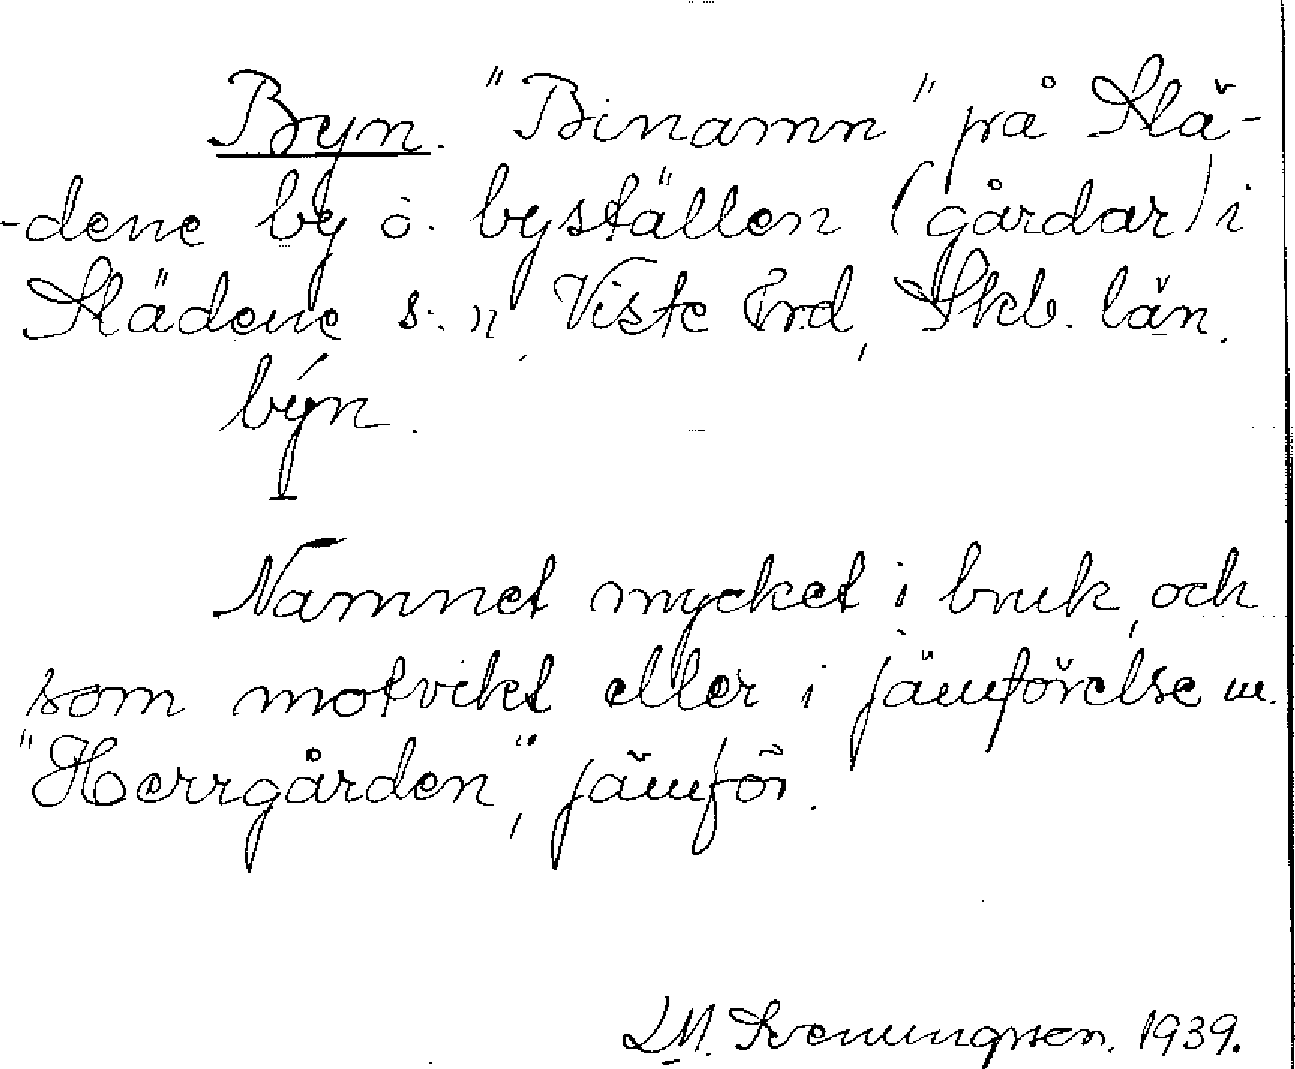 Byn. "Binamn" på Slä-
-dene by o. byställen (gårdar) i
Slädene s:n, Viste hrd, Skb. län.
býn.
Namnet mycket i bruk, och
som motvikt eller i jämförelse m.
"Herrgården", jämför.
L.M. Svenungsson. 1939.